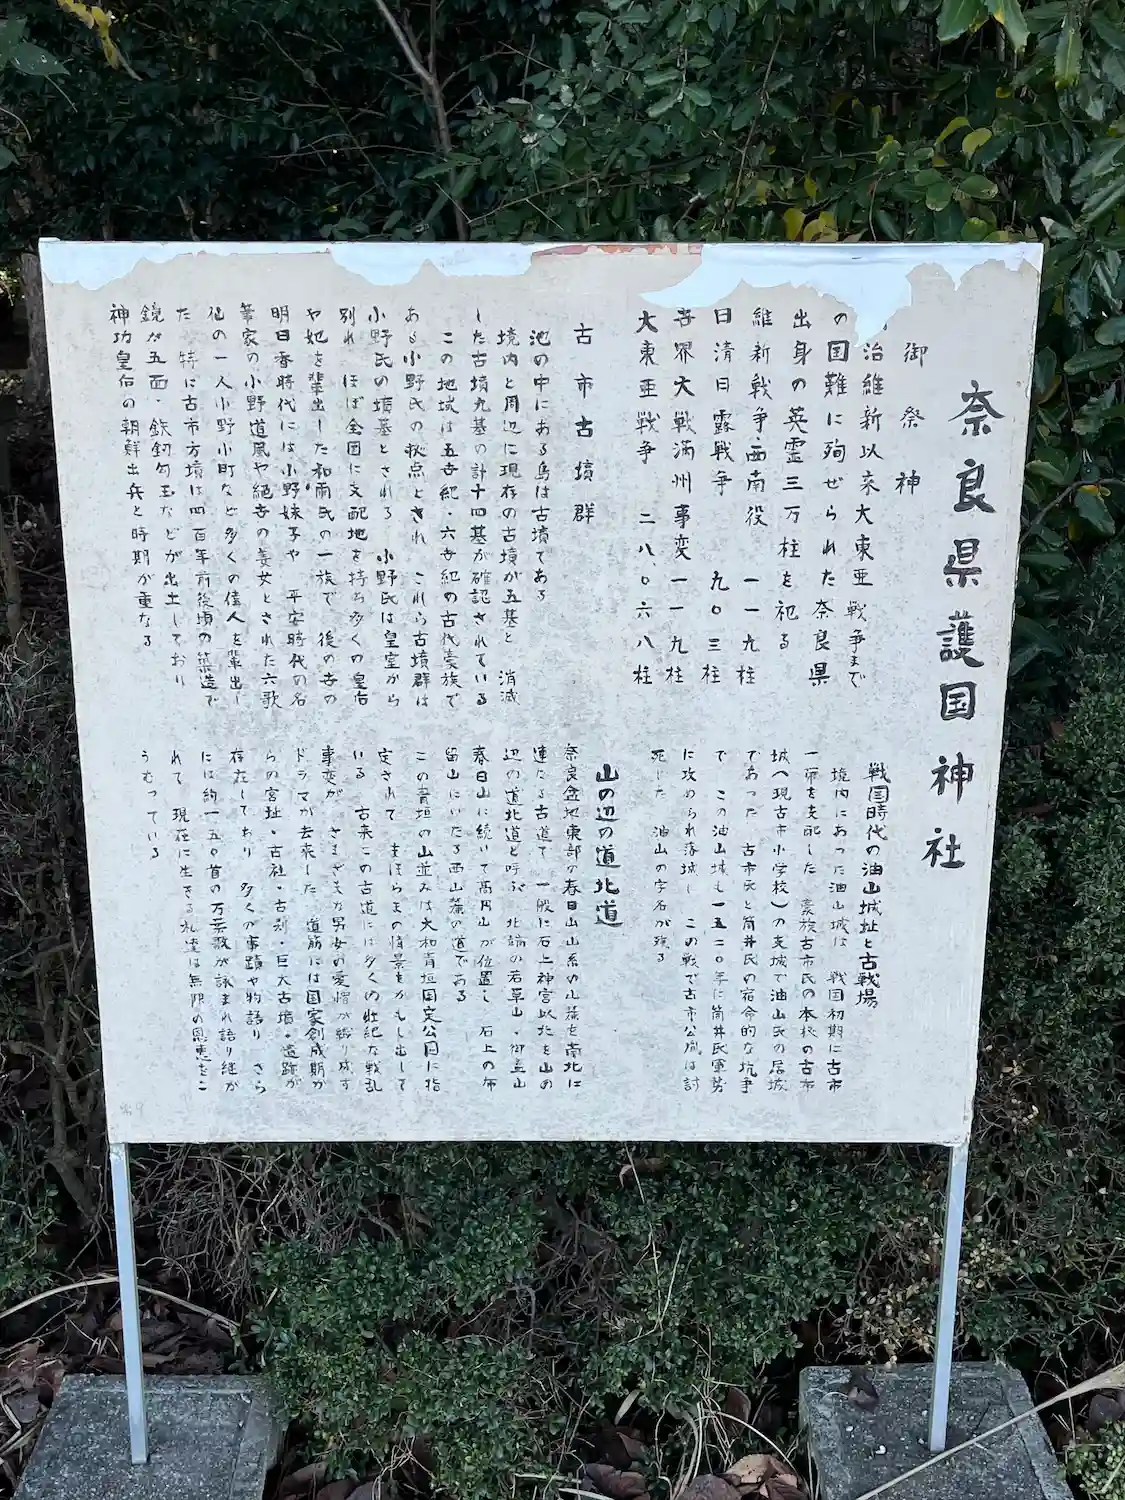 奈良県護国神社
御祭神
治維新以来大東亜戦争まで
の国難に殉ぜられた奈良県
出身の英霊三万柱を祀る
維新戦争・西南役 一一九柱
日清日露戦争 九〇三柱
大戦満州事変一一九柱
大東亜戦争 二八、〇六八柱
古市古墳群
池の中にある島は古墳である
境内と周辺に現存の古墳が五基と 消滅
した古墳九基の計十四基が確認されている
この地域は五世紀・六世紀の古代豪族で
ある小野氏の拠点とされ これら古墳群は
小野氏の墳墓とされる 小野氏は皇室から
別れ ほぼ全国に支配地を持ち多くの皇后
や妃を輩出した和珥氏の一族で 後の世の
明日香時代には小野妹子や 平安時代の名
筆家の小野道風や絶世の美女とされた六歌
仙の一人小野小町など多くの偉人を輩出し
た 特に古市方墳は四百年前後頃の築造で
鏡が五面・鉄釼勾玉などが出土しており
神功皇后の朝鮮出兵と時期が重なる
戦国時代の油山城址と古戦場
境内にあった油山城は 戦国初期に古市
一帯を支配した 豪族古市氏の本拠の古市
城へ現古市小学校)の支城で油山氏の居城
であった 古市氏と筒井氏の宿命的な抗争
で この油山城も一五二〇年に筒井氏軍勢
に攻められ落城し この戦で古市公胤は討
死した 油山の字名が残る
山の辺の道北道
奈良盆地東部の春日山山系の山麓を南北に
連なる古道で 一般に石上神宮以北を山の
辺の道北道と呼ぶ 北端の若草山・御蓋山
春日山に続いて高円山が位置し 石上の布
留山にいたる西山麓の道である
この青垣の山並みは大和青垣国定公園に指
定されて まほらまの情景をかもし出して
いる 古来この古道には多くの壮絶な戦乱
事変が さまざまな男女の愛憎が織り成す
ドラマが去来した 道筋には国家創成期か
らの宮址・古社・古刹・巨大古墳・遺跡が
存在しており 多くの事蹟や物語り さら
には約一五〇首の万葉歌が詠まれ語り継が
れて 現在に生きる私達は無限の恩恵をこ
うむっている